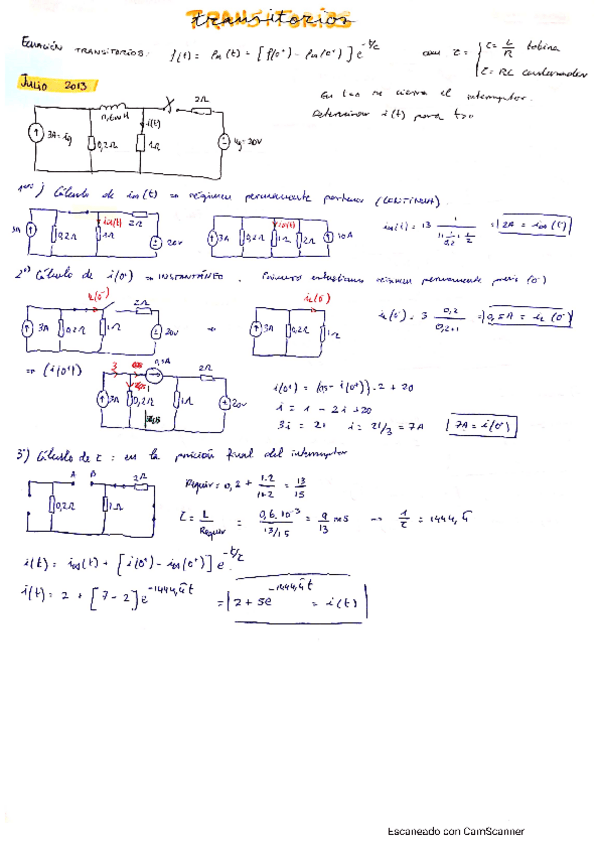 TRANSITORIOS
ECUACIÓN TRANSITORIOS: f(t) = f∞(t) + [f(0⁺) - f∞(0⁺)] e^-t/τ con τ = { τ = L/R bobina
τ = RC condensador
Julio 2013
En t=0 se cierra el interruptor.
Determinar i(t) para t>0
0,6mH 2Ω
3A = ig 0,2Ω i(t) 1Ω ug = 20V
1º) Cálculo de i∞(t) → régimen permanente posterior (CONTINUA).
3A 0,2Ω i∞(t) 1Ω 2Ω 20V
3A 0,2Ω i∞(t) 1Ω 2Ω 10A
i∞(t) = 13 1/(1+1/0,2+1/2) = 2A = i∞(t)
2º) Cálculo de i(0⁺) → INSTANTÁNEO. Primero estudiamos régimen permanente previo (0⁻)
iL(0⁻) 2Ω
3A 0,2Ω 1Ω 20V
⇒
iL(0⁻)
3A 0,2Ω 1Ω
iL(0⁻) = 3 0,2/(0,2+1) = 0,5A = iL(0⁻)
⇒ (i(0⁺))
3 0,5A 2Ω
3A 0,2Ω 1Ω 20V
i(0⁺) = (0,5 - i(0⁺))·2 + 20
i = 1 - 2i + 20
3i = 21 i = 21/3 = 7A 7A = i(0⁺)
3º) Cálculo de τ: en la posición final del interruptor
A B 2Ω
0,2Ω 1Ω
Requiv = 0,2 + 1·2/1+2 = 13/15
τ = L/Requiv = 0,6·10⁻³/13/15 = 9/13 ms → 1/τ = 1444,4̂
i(t) = i∞(t) + [i(0⁺) - i∞(0⁺)] e^-t/τ
i(t) = 2 + [7 - 2] e^-1444,4̂ t = 2 + 5e^-1444,4̂ t = i(t)
Escaneado con CamScanner